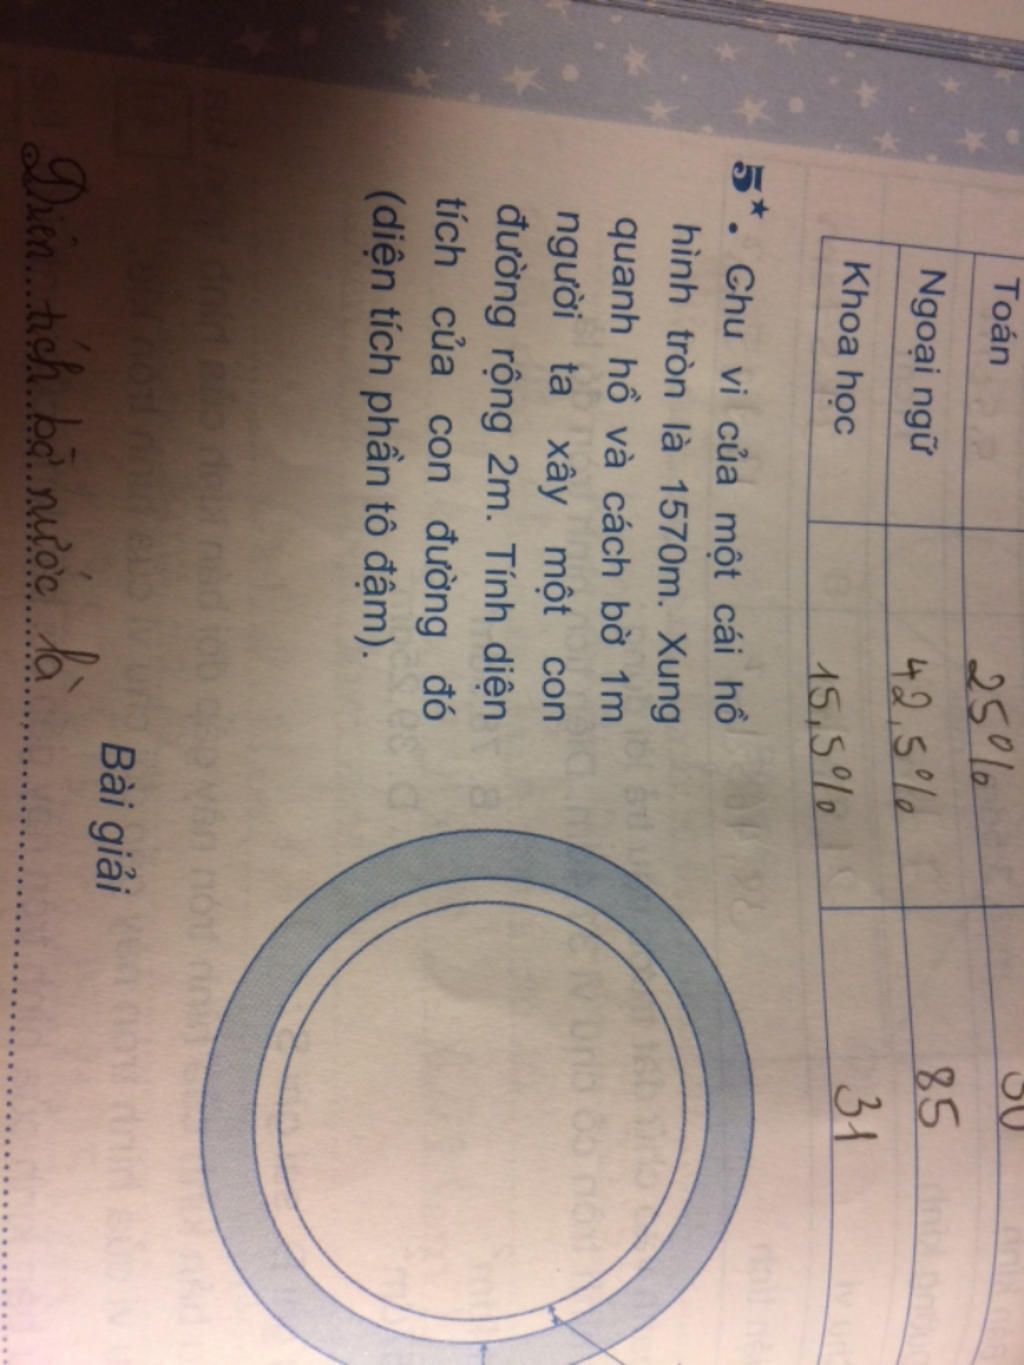 Toán 25%
Ngoại ngữ 42,5% 85
Khoa học 15,5% 31
5*. Chu vi của một cái hồ
hình tròn là 1570m. Xung
quanh hồ và cách bờ 1m
người ta xây một con
đường rộng 2m. Tính diện
tích của con đường đó
(diện tích phần tô đậm).
Bài giải
Diên tích bờ nước là